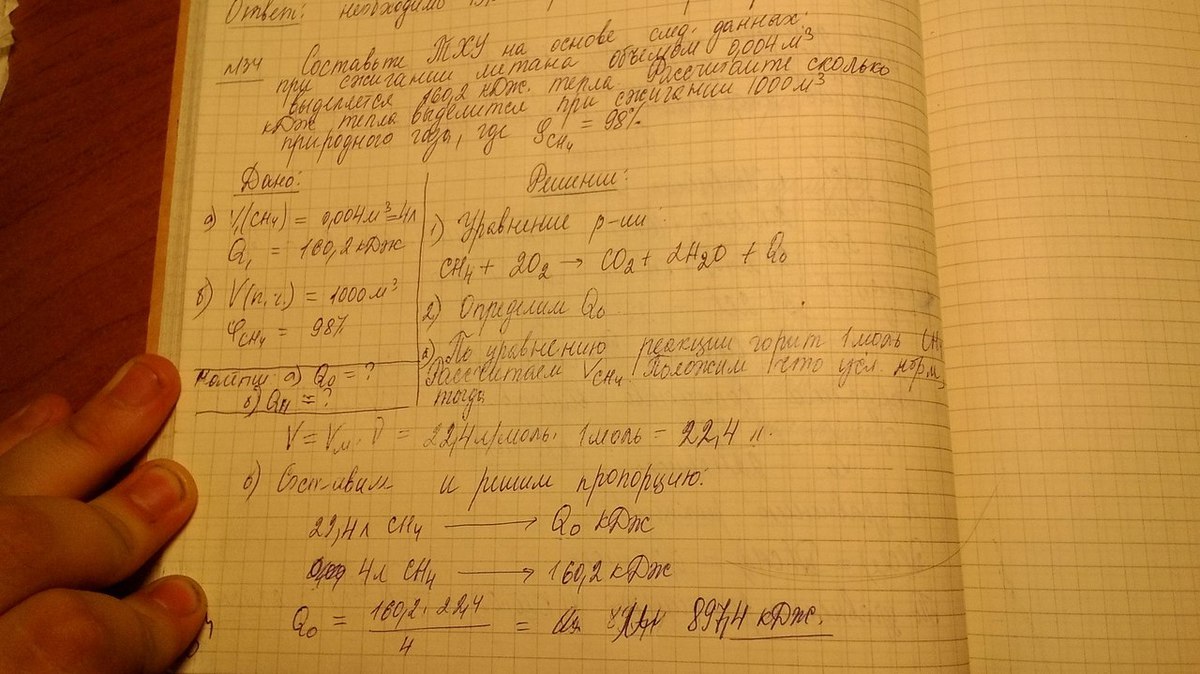 Ответ: необходимо
№34 Составьте ТХУ на основе след. данных:
при сжигании метана объёмом 0,004 м³
выделяется 160,2 кДж. тепла. Рассчитайте сколько
кДж тепла выделится при сжигании 1000 м³
природного газа, где φCH₄ = 98%
Дано:
а) V₁(CH₄) = 0,004м³=4л
Q₁ = 160,2 кДж
б) V(п.г.) = 1000 м³
φCH₄ = 98%
Найти: а) Q₀ = ?
б) Qн = ?
Решение:
1) Уравнение р-ии:
CH₄ + 2O₂ → CO₂ + 2H₂O + Q₀
2) Определим Q₀
а) По уравнению реакции горит 1 моль CH₄
Рассчитаем VCH₄. Положим, что усл. норм.,
тогда
V = Vм · ν = 22,4 л/моль · 1 моль = 22,4 л.
б) Составим и решим пропорцию:
22,4 л CH₄ → Q₀ кДж
4л CH₄ → 160,2 кДж
Q₀ = 160,2 · 22,4 / 4 = 897,4 кДж.